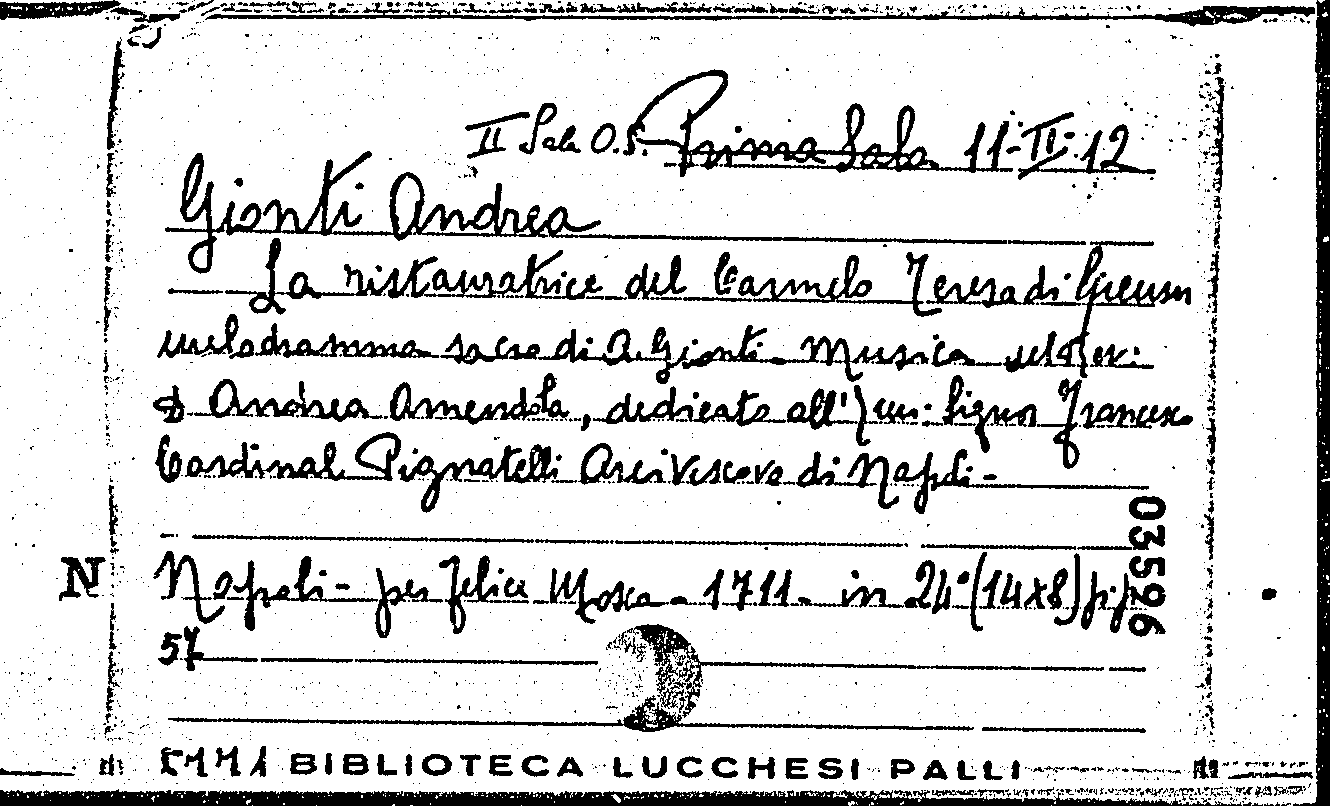 II Sala O.S. Prima Sala 11-II-12
Gionti Andrea
La ristauratrice del Carmelo Teresa di Giesu
melodramma sacro di A. Gionti - Musica del Ser:
D. Andrea Amendola, dedicato all'Em: Signor Francesco
Cardinal Pignatelli Arcivescovo di Napoli -
03596
N
Napoli - per Felice Mosca - 1711 - in 24° (14x8) pp.
57
BIBLIOTECA LUCCHESI PALLI